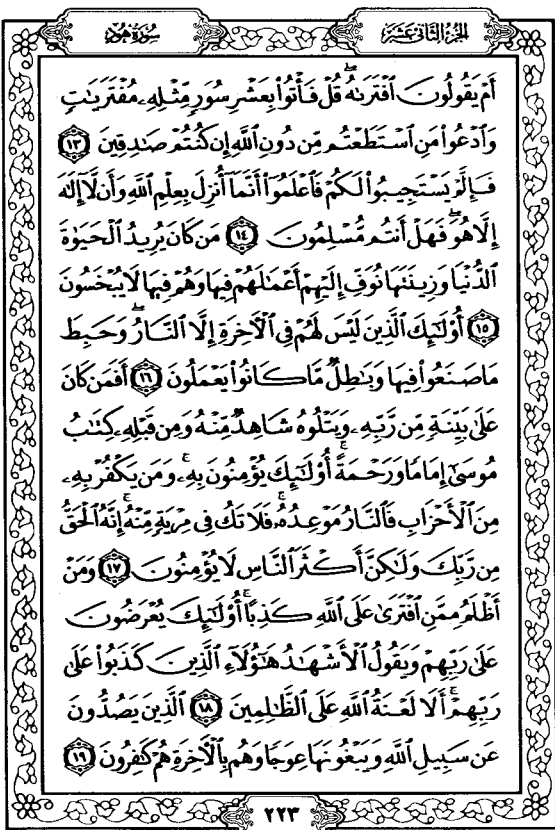 الجزء الثاني عشر
سورة هود
أَمْ يَقُولُونَ ٱفْتَرَىٰهُ ۖ قُلْ فَأْتُوا۟ بِعَشْرِ سُوَرٍ مِّثْلِهِۦ مُفْتَرَيَٰتٍ
وَٱدْعُوا۟ مَنِ ٱسْتَطَعْتُم مِّن دُونِ ٱللَّهِ إِن كُنتُمْ صَٰدِقِينَ ١٣
فَإِلَّمْ يَسْتَجِيبُوا۟ لَكُمْ فَٱعْلَمُوٓا۟ أَنَّمَآ أُنزِلَ بِعِلْمِ ٱللَّهِ وَأَن لَّآ إِلَٰهَ
إِلَّا هُوَ ۖ فَهَلْ أَنتُم مُّسْلِمُونَ ١٤ مَن كَانَ يُرِيدُ ٱلْحَيَوٰةَ
ٱلدُّنْيَا وَزِينَتَهَا نُوَفِّ إِلَيْهِمْ أَعْمَٰلَهُمْ فِيهَا وَهُمْ فِيهَا لَا يُبْخَسُونَ
١٥ أُو۟لَٰٓئِكَ ٱلَّذِينَ لَيْسَ لَهُمْ فِى ٱلْءَاخِرَةِ إِلَّا ٱلنَّارُ ۖ وَحَبِطَ
مَا صَنَعُوا۟ فِيهَا وَبَٰطِلٌ مَّا كَانُوا۟ يَعْمَلُونَ ١٦ أَفَمَن كَانَ
عَلَىٰ بَيِّنَةٍ مِّن رَّبِّهِۦ وَيَتْلُوهُ شَاهِدٌ مِّنْهُ وَمِن قَبْلِهِۦ كِتَٰبُ
مُوسَىٰٓ إِمَامًا وَرَحْمَةً ۚ أُو۟لَٰٓئِكَ يُؤْمِنُونَ بِهِۦ ۚ وَمَن يَكْفُرْ بِهِۦ
مِنَ ٱلْأَحْزَابِ فَٱلنَّارُ مَوْعِدُهُۥ ۚ فَلَا تَكُ فِى مِرْيَةٍ مِّنْهُ ۚ إِنَّهُ ٱلْحَقُّ
مِن رَّبِّكَ وَلَٰكِنَّ أَكْثَرَ ٱلنَّاسِ لَا يُؤْمِنُونَ ١٧ وَمَنْ
أَظْلَمُ مِمَّنِ ٱفْتَرَىٰ عَلَى ٱللَّهِ كَذِبًا ۚ أُو۟لَٰٓئِكَ يُعْرَضُونَ
عَلَىٰ رَبِّهِمْ وَيَقُولُ ٱلْأَشْهَٰدُ هَٰٓؤُلَآءِ ٱلَّذِينَ كَذَبُوا۟ عَلَىٰ
رَبِّهِمْ ۚ أَلَا لَعْنَةُ ٱللَّهِ عَلَى ٱلظَّٰلِمِينَ ١٨ ٱلَّذِينَ يَصُدُّونَ
عَن سَبِيلِ ٱللَّهِ وَيَبْغُونَهَا عِوَجًا وَهُم بِٱلْءَاخِرَةِ هُمْ كَٰفِرُونَ ١٩
٢٢٣